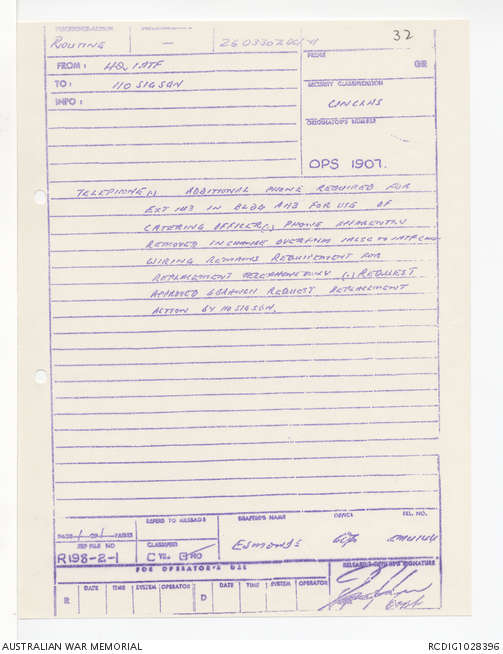 32
ROUTING — 260330Z OCT 71
FROM: HQ 1ATF
GR
TO: 110 SIGSQN
SECURITY CLASSIFICATION
INFO:
UNCLAS
ORIGINATOR'S NUMBER
OPS 1907.
TELEPHONE(.) ADDITIONAL PHONE REQUIRED FOR
EXT 103 IN BLDG FOR USE OF
CATERING OFFICER(.) PHONE APPARENTLY
REMOVED IN CHANGE OVER FROM TO
WIRING REMAINS REQUIREMENT FOR
REPLACEMENT (.) REQUEST
APPROVED REQUEST REPLACEMENT
ACTION BY 110 SIGSQN.
PAGE 1 OF 1 PAGES
REFERS TO MESSAGE
DRAFTER'S NAME
OFFICE
TEL. NO.
REF FILE NO
R198-2-1
CLASSIFIED
YES NO
ESMONDE
FOR OPERATOR'S USE
RELEASING OFFICER'S SIGNATURE
R DATE TIME SYSTEM OPERATOR D DATE TIME SYSTEM OPERATOR
CAPT
AUSTRALIAN WAR MEMORIAL
RCDIG1028396